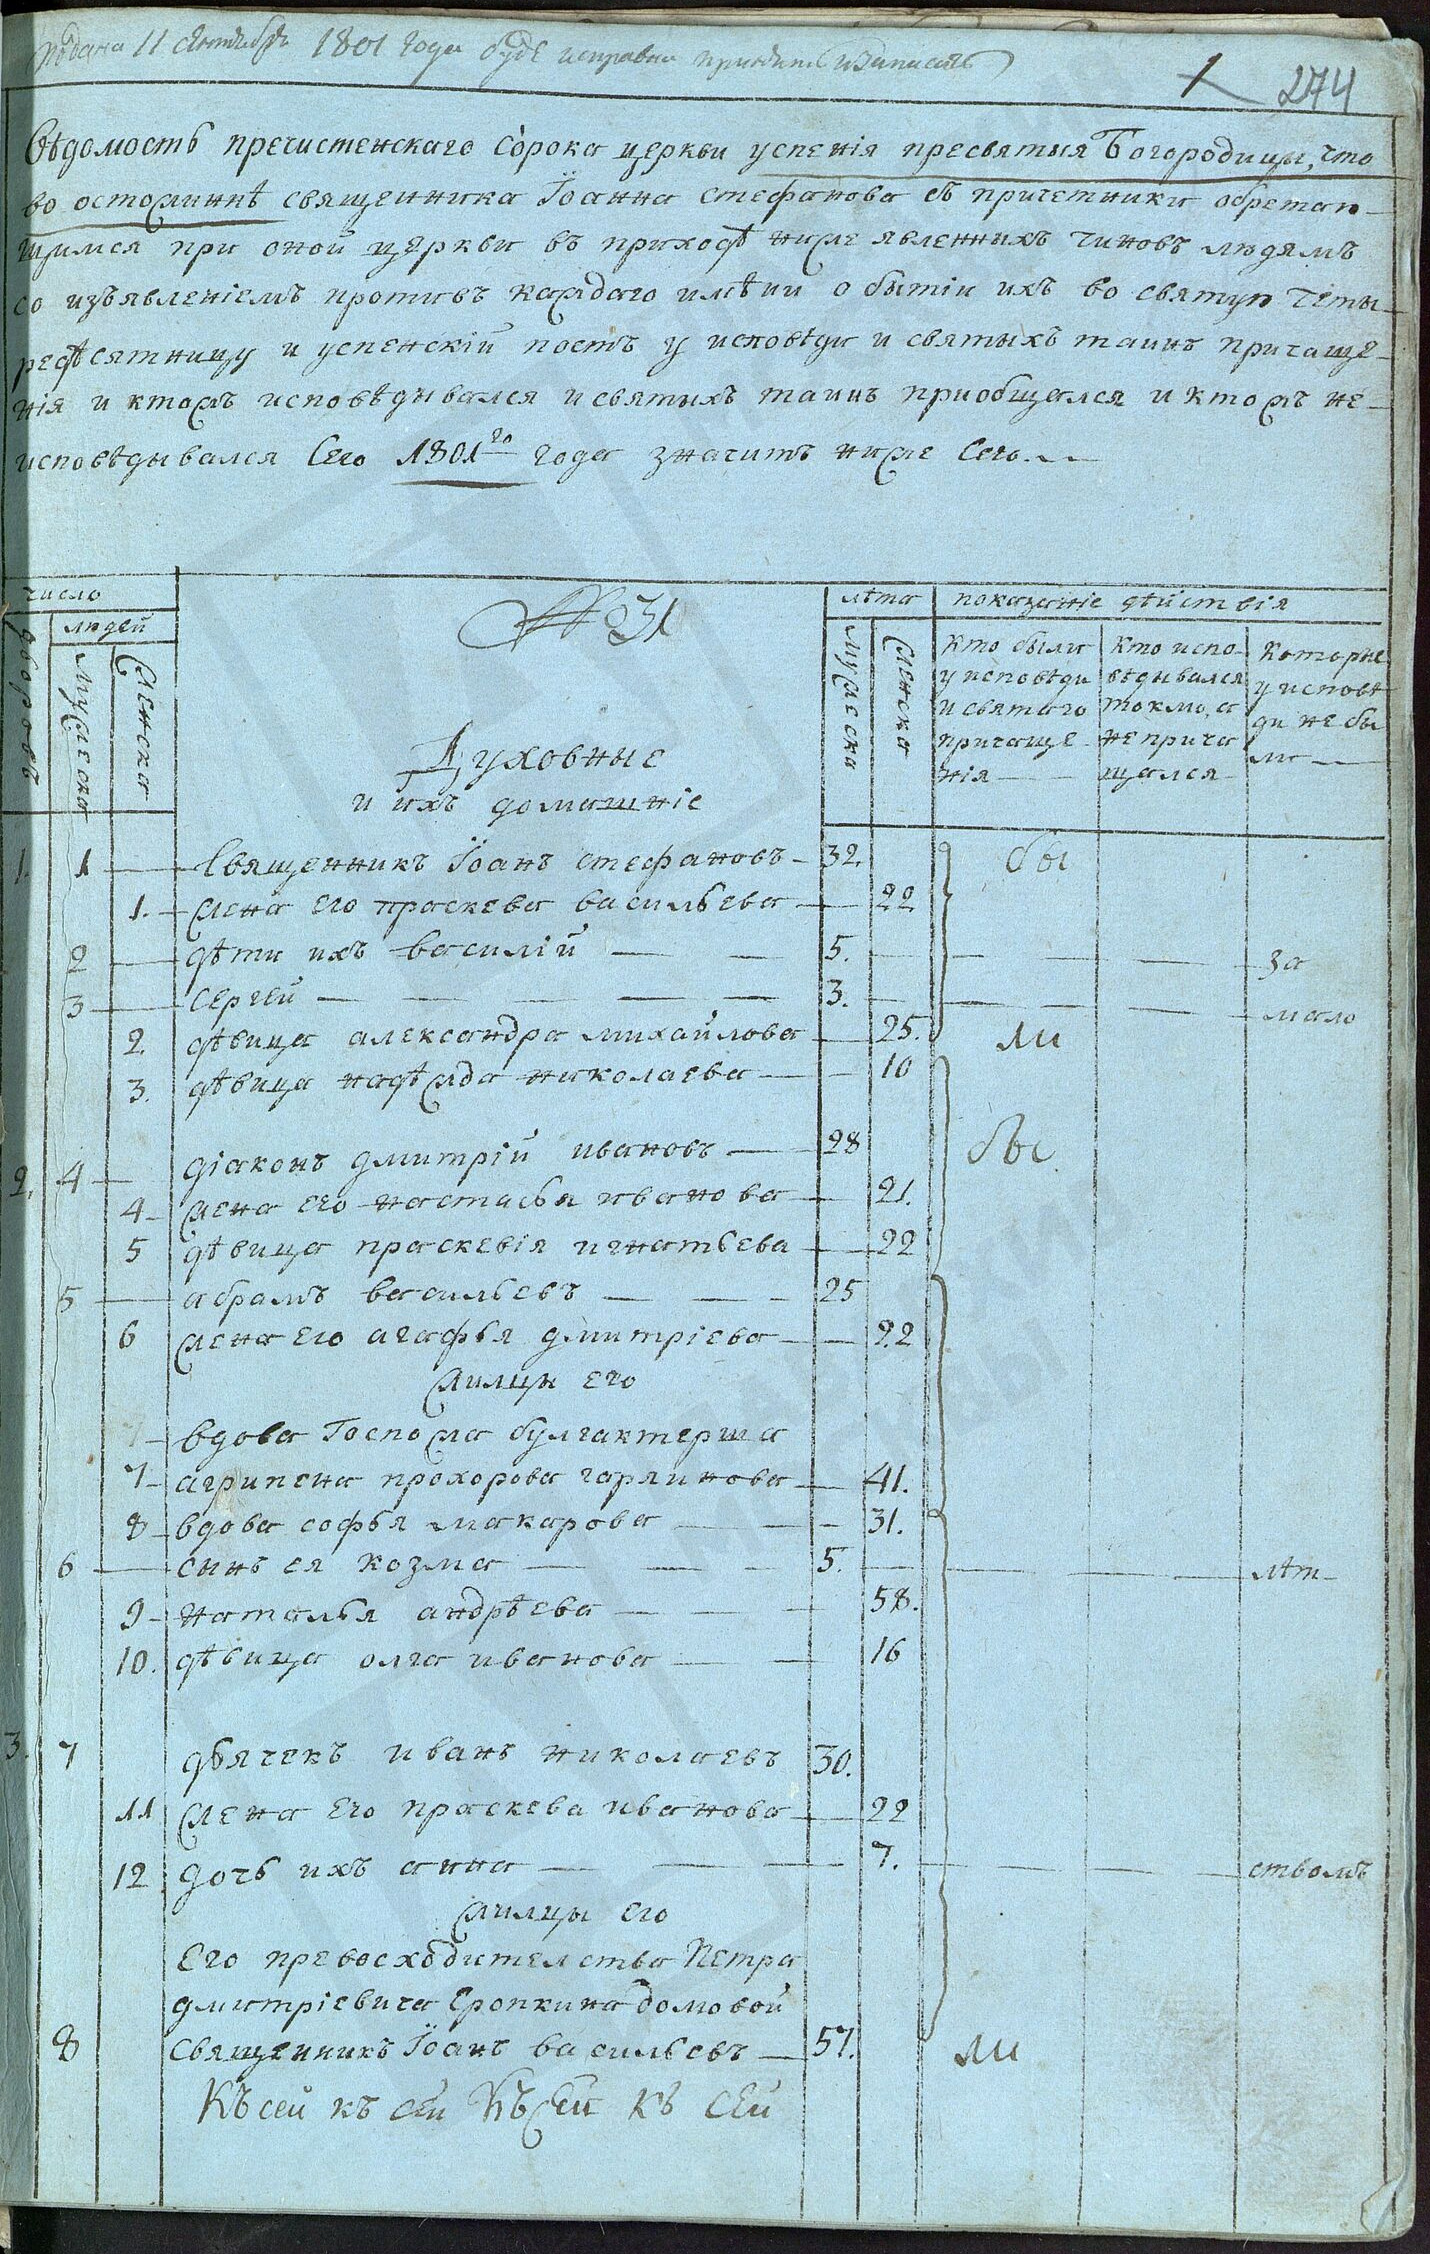 подана 11 сентября 1801 года буде исправна принять и записать
1 274
Вѣдомость пречистенскаго сорока церкви успенія пресвятыя Богородицы, что
во остожиннѣ священника Іоанна стефанова съ причетники обретаю-
щимся при оной церкви въ приходѣ ниже явленныхъ чиновъ людямъ
со изъявленіемъ противъ каждаго имѣни о бытіи ихъ во святую четы-
редѣсятницу и успенскій постъ у исповѣди и святыхъ таинъ причаще-
нія и ктожъ исповѣдывался и святыхъ таинъ приобщался и ктожъ не-
исповѣдывался Сего 1801го года значитъ ниже сего.
число
людей
дворовъ
мужеска
женска
№ 31
Духовные
и ихъ домашніе
лѣта
мужеска
женска
показаніе дѣйствія
кто были у исповѣди и святаго причащенія
кто исповѣдывался токмо, а не причащался
которые у исповѣди не были
1. 1 Священникъ Іоанъ стефановъ 32. бы
1. жена его праскева васильева 22
2 дѣти ихъ василій 5. за
3 сергей 3. мало
2. дѣвица александра михайлова 25. ли
3. дѣвица надѣжда николаева 10
2. 4 діаконъ дмитрій ивановъ 28 бы
4 жена его настасья иванова 21.
5 дѣвица праскевія игнатьева 22
5 абрамъ васильевъ 25
6 жена его агафья дмитріева 22
жилцы его
вдова Госпожа булгактерша
7 агрипена прохорова гарлинова 41.
8 вдова софья макарова 31.
6 сынъ ея козма 5. лѣт-
9 наталья андрѣева 58.
10. дѣвица олга иванова 16
3. 7 дьячекъ иванъ николаевъ 30.
11 жена его праскева иванова 22
12 дочь ихъ анна 7. ствомъ
жилцы его
Его превосходителства Петра
дмитріевича Еропкина домовой
8 священникъ Іоанъ васильевъ 57. ли
Къ сей къ сей Къ сей къ сей